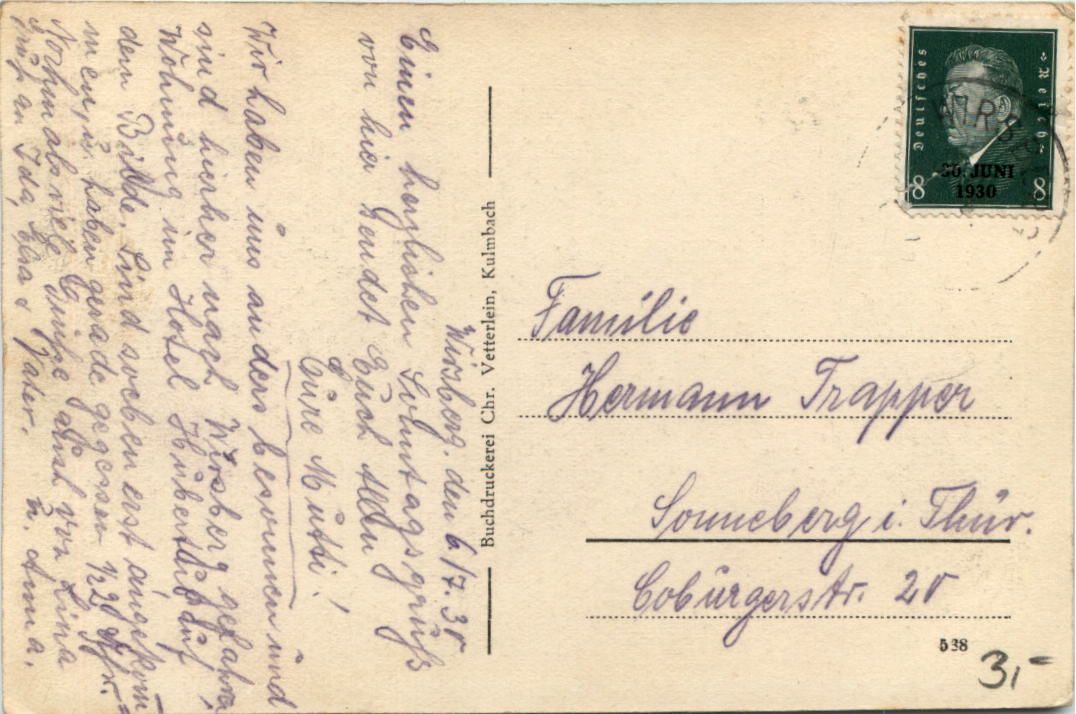 Wirsberg, den 6/7.30
Einen herzlichen Sonntagsgruß
von hier sendet Euch allen
Eure Mutti!
Wir haben uns anders besonnen und
sind hierher nach Wirsberg gefahren,
Wohnung im Hotel Hubertus auf
dem Bilde. Sind soeben erst angekom
men, u. haben gerade gegessen 1/2 2 Uhr.
Nochmals viele Grüße auch von Lina
Gruß an Ida, Elsa & Vater. u. Anna.
Buchdruckerei Chr. Vetterlein, Kulmbach
Deutsches Reich
WIRSB
30. JUNI
1930
8 8
Familie
Hermann Trapper
Sonneberg i. Thür.
Coburgerstr. 20
538
3,-